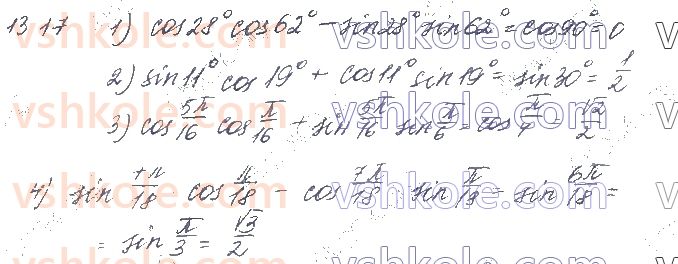 13.17 1) cos28° cos62° − sin28° sin62° = cos90° = 0
2) sin11° cos19° + cos11° sin19° = sin30° = 1/2
3) cos 5π/16 cos π/16 + sin 5π/16 sin π/6 = cos π/4 = √2/2
4) sin 7π/18 cos π/18 − cos 7π/18 · sin π/18 = sin 6π/18 =
= sin π/3 = √3/2
vshkole.com